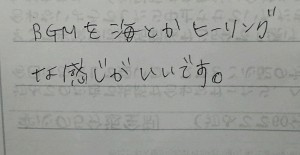 BGMを海とかヒーリング
な感じがいいです。